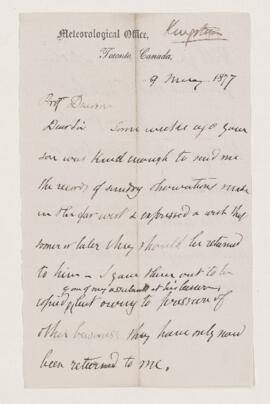 Kingston
Meteorological Office,
Toronto, Canada,
9 May, 1877
Prof Dawson
Dear Sir Some weeks ago your
son was kind enough to send me
the records of sundry observations made
in the far west & expressed a wish that
sooner or later they should be returned
to him – I gave them out to be
by one of my assistants at his leisure
copied but owing to pressure of
other business they have only now
been returned to me.